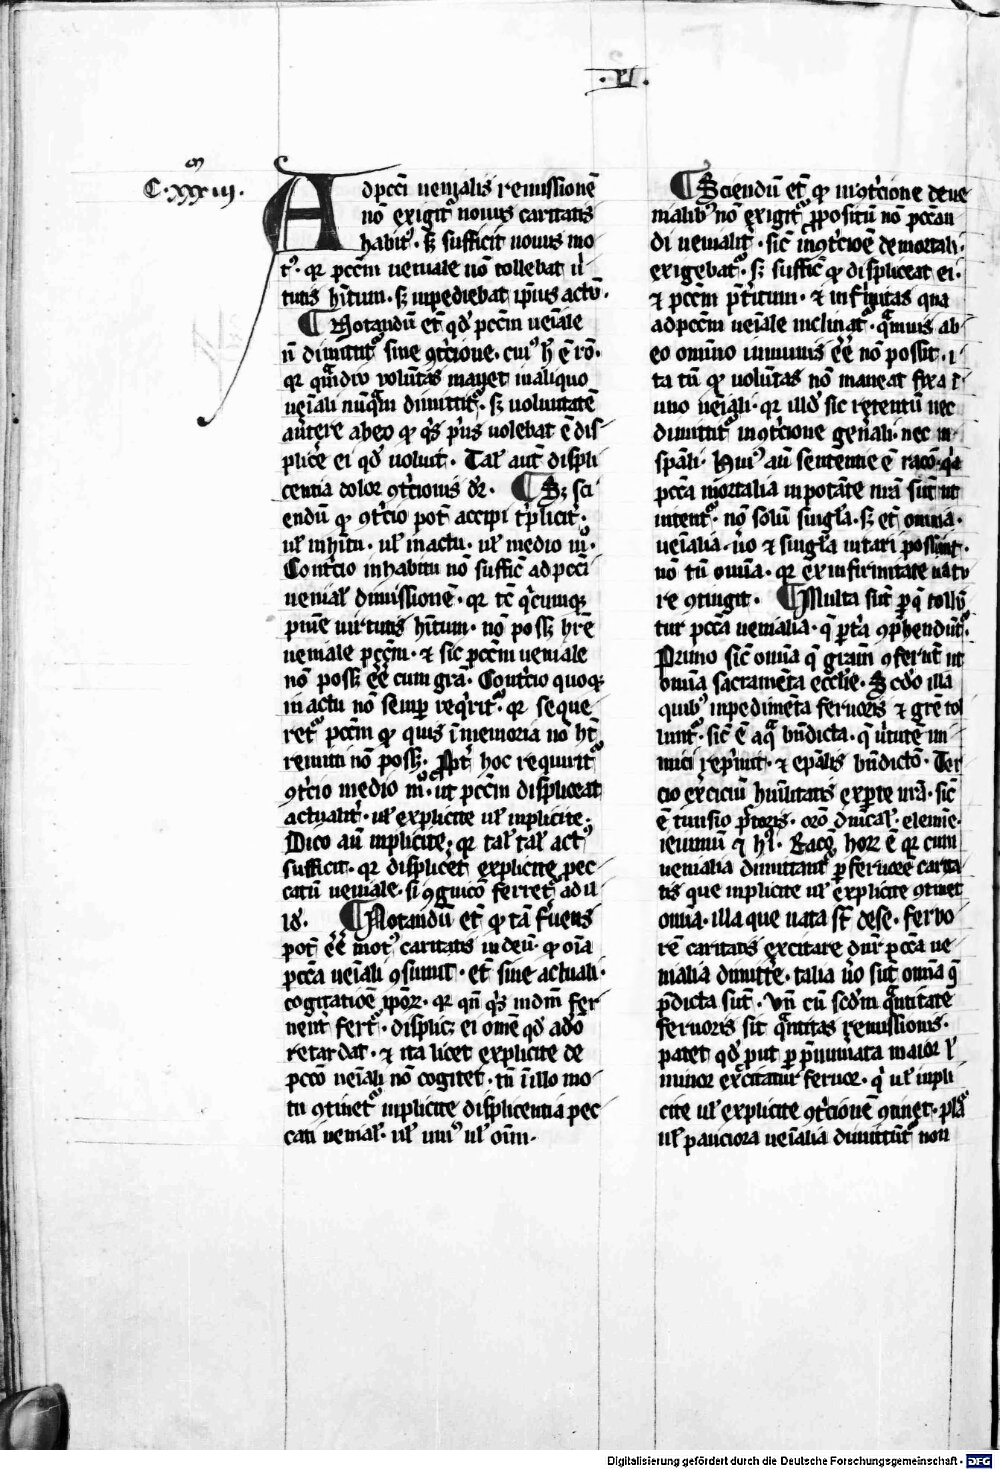 .vi.
C.xxxiii.
Ad pcci venialis remissionē
nō exigit᷑ novus caritatis
habit᷒. sꝫ sufficit novus mo
t᷒. qꝛ pccm veniale nō tollebat v̉
tutis hītum. sꝫ inpediebat ipius actū.
¶ Notandū et̄ qd pccm veīale
n̄ dimittit᷑ sine ꝯtcione. cui᷒ hͨ ē rō.
qꝛ qͣmdiu volūtas manet in aliquo
veīali nūqͣm dimittit᷑. sꝫ voluntatē
auferre ab eo qͦ qͥs pͥus volebat ē dis
plicē ei qd voluit. Talˀ aut̄ displi
centia dolor ꝯtcionis dr̄. ¶ Sꝫ sci
endū qͦ ꝯtcio pot̄ accipi tͥplicit̉.
vl̉ in hītu. vl̉ in actu. vl̉ medio mͦ.
Contcio in habitu nō sufficͭ ad pcci
venialˀ dimissionē. qꝛ tͨ qͥcumqꝫ
pniē virtutis hītum. nō possꝫ hr̄e
veniale pccm. ⁊ sic pccm veniale
nō possꝫ ēē cum grā. Contcio quoqꝫ
in actu nō semꝑ reqͥrit᷑. qꝛ seque
ret᷑ pccm qͦ quis ī memoria nō ht̄
remitti nō possꝫ. Ppt̉ hoc requirit᷑
ꝯtcio medio mͦ. ut pccm displiceat
actualit̉. vl̉ explicite vl̉ inplicite.
Dico aut̄ inplicite. qꝛ talˀ talˀ act᷒
sufficit. qꝛ displicet explicite pec
catū veniale. si ꝯgnicō ferret᷑ ad il
lḋ. ¶ Notandū et̄ qͦ tā fͮens
pot̄ ēē mot᷒ caritatis in deū. qͦ oīa
pccā veīali ꝯsumit. et̄ sine actuali.
cogitatiōe ipoꝝ. qꝛ qn̄ qͥs in dm̄ fer
vent̉ fert᷑. displicꝫ ei omē qd ab eo
retardat. ⁊ ita licet explicite de
pccō veīali nō cogitet. tn̄ ī illo mo
tu ꝯtinet᷑ inplicite displicentia pec
cati venialˀ. vl̉ uni᷒ vl̉ oīm.
¶ Sciendū et̄ qͦ in ꝯtcione de ve
nialib᷒ nō exigit᷑ ꝓpositū nō peccan
di venialit̉. sicͭ in ꝯtcioē de mortali.
exigebat᷑. sꝫ sufficͭ qͦ displiceat ei.
⁊ pccm pt̉itum. ⁊ infirmitas qua
ad pccm veīale inclinat᷑. qͣmvis ab
eo omīno inmunis ēē nō possit. i
ta tn̄ qͦ volūtas nō maneat fixa ī
uno veīali. qꝛ illḋ sic retentū nec
dimittit᷑ in ꝯtcione gen̉ali. nec in
spāli. Hui᷒ aut̄ sententie ē racō. qꝛ
pccā mortalia in potāte nrā sūt ut
nō solū singlā. sꝫ et̄ omnia.
veīalia. v̉o ⁊ singlā vitari possunt.
nō tn̄ omīa. qꝛ ex infirmitate natu
re ꝯtingit. ¶ Multa sūt ꝑ q̄ tollū
tur pccā venialia. q̄ ꝯp̄hendūt᷑.
Primo sicͭ omīa q̄ grām ꝯferūt ut
omīa sacramēta ecclie. Scdo illa
quib᷒ inpedimēta fervoris ⁊ grē tol
lunt᷑. sicͭ ē aqͣ bn̄dicta. q̄ v̉tutē ini
mici rep̉mit. ⁊ epālis bn̄dictō. Ter
cio exͬciciū hūilitatis ex ꝑte nrā. sicͭ
ē tunsio pectoris. orō dn̄icalˀ. elemīe.
ieiuniū ⁊ hͥ. Racō hoꝝ ē qꝛ cum
venialia dimittant᷑ ꝑ fervorē carita
tis que inplicite vl̉ explicite ꝯtinet
omīa. illa que nata sūt de se. fervo
rē caritatis excitare dn̄r pccā ve
nialia dimitte. talia v̉o sūt omīa q̄
p̄dicta sūt. Vn̄ cū scdm qͣntitatē
fervoris sit qͣntitas remissionis.
patet qd put ꝑ pnūiata maior vl̉
minor excitatur fervor. qͥ vl̉ inpli
cite vl̉ explicite ꝯtcionē ꝯtinet. plͣa
vl̉ pauciora veīalia dimittūt᷑ non
Digitalisierung gefördert durch die Deutsche Forschungsgemeinschaft - DFG